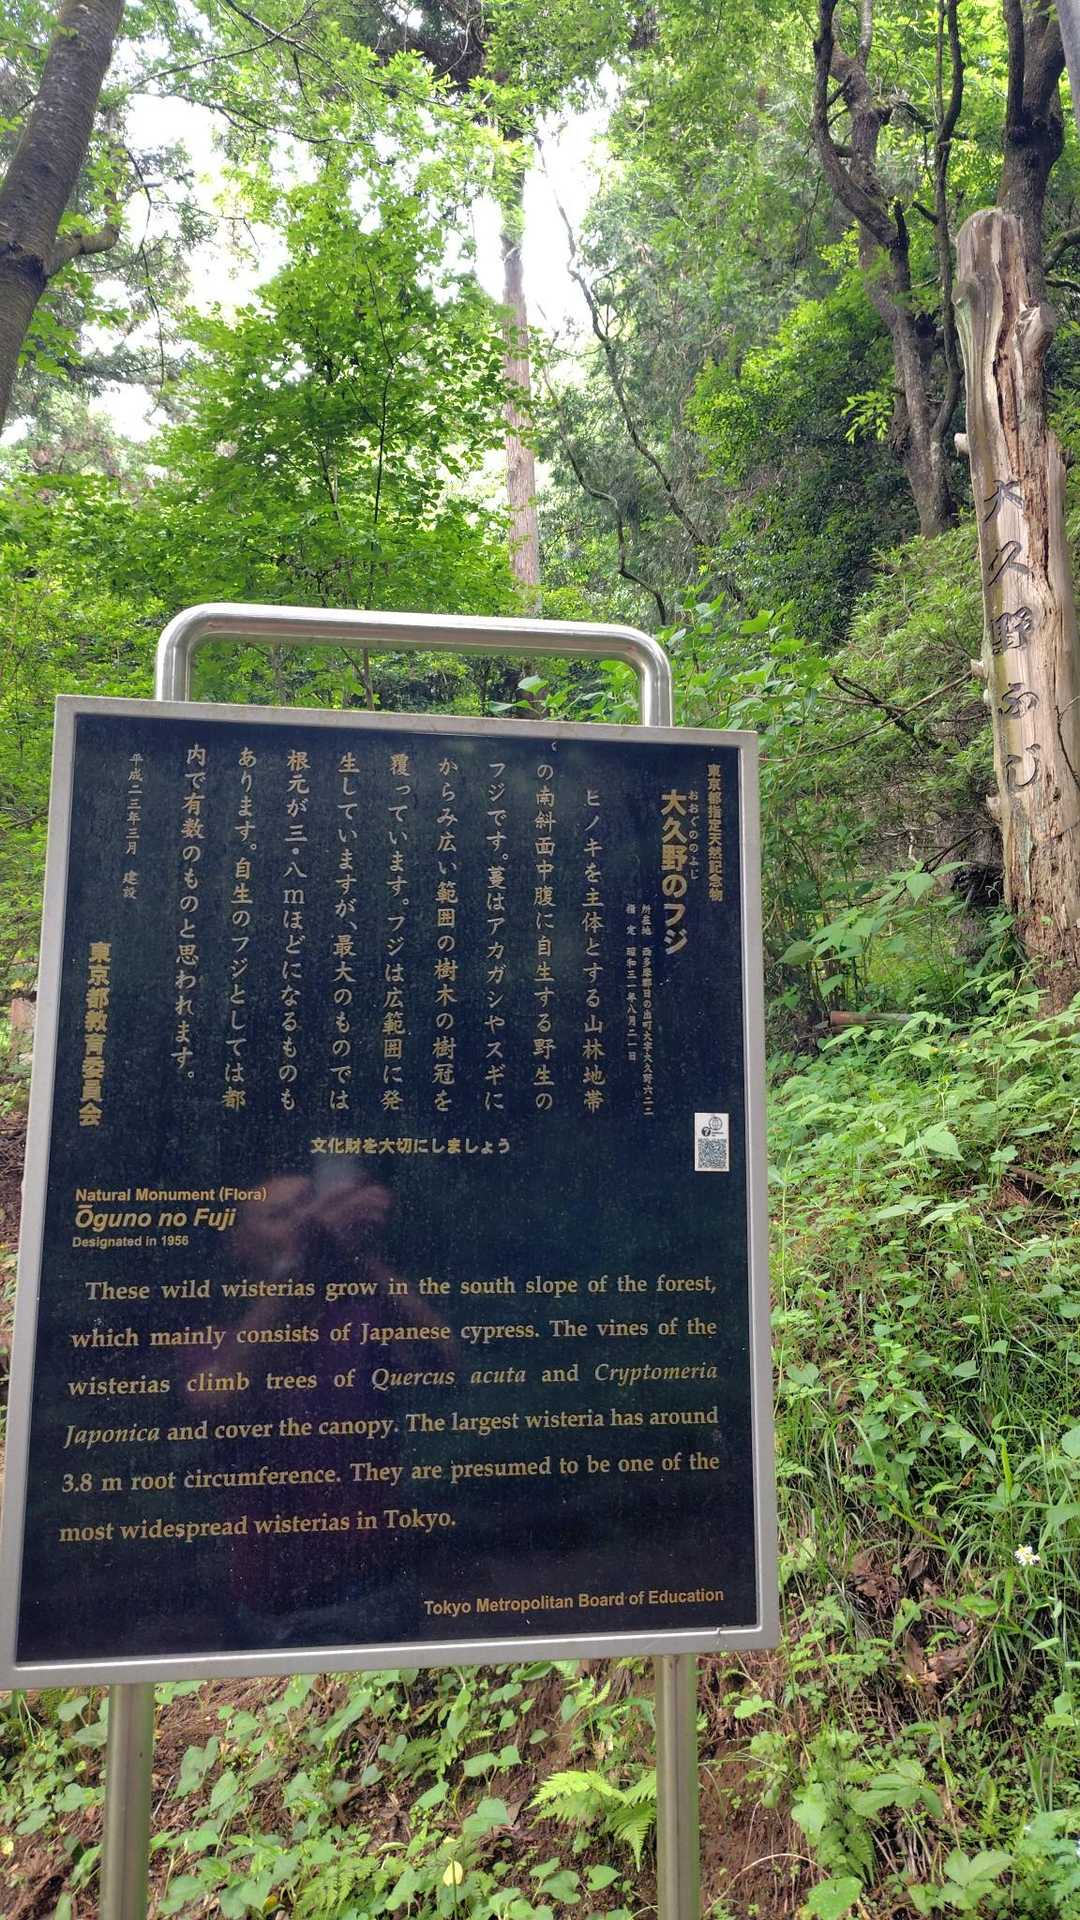 東京都指定天然記念物
おおぐののふじ
大久野のフジ
所在地 西多摩郡日の出町大字大久野六二二
指定 昭和三一年八月二一日
ヒノキを主体とする山林地帯
の南斜面中腹に自生する野生の
フジです。蔓はアカガシやスギに
からみ広い範囲の樹木の樹冠を
覆っています。フジは広範囲に発
生していますが、最大のものでは
根元が三・八mほどになるものも
あります。自生のフジとしては都
内で有数のものと思われます。
平成二三年三月 建設
東京都教育委員会
文化財を大切にしましょう
Natural Monument (Flora)
Ōguno no Fuji
Designated in 1956
These wild wisterias grow in the south slope of the forest,
which mainly consists of Japanese cypress. The vines of the
wisterias climb trees of Quercus acuta and Cryptomeria
Japonica and cover the canopy. The largest wisteria has around
3.8 m root circumference. They are presumed to be one of the
most widespread wisterias in Tokyo.
Tokyo Metropolitan Board of Education
大久野ふじ